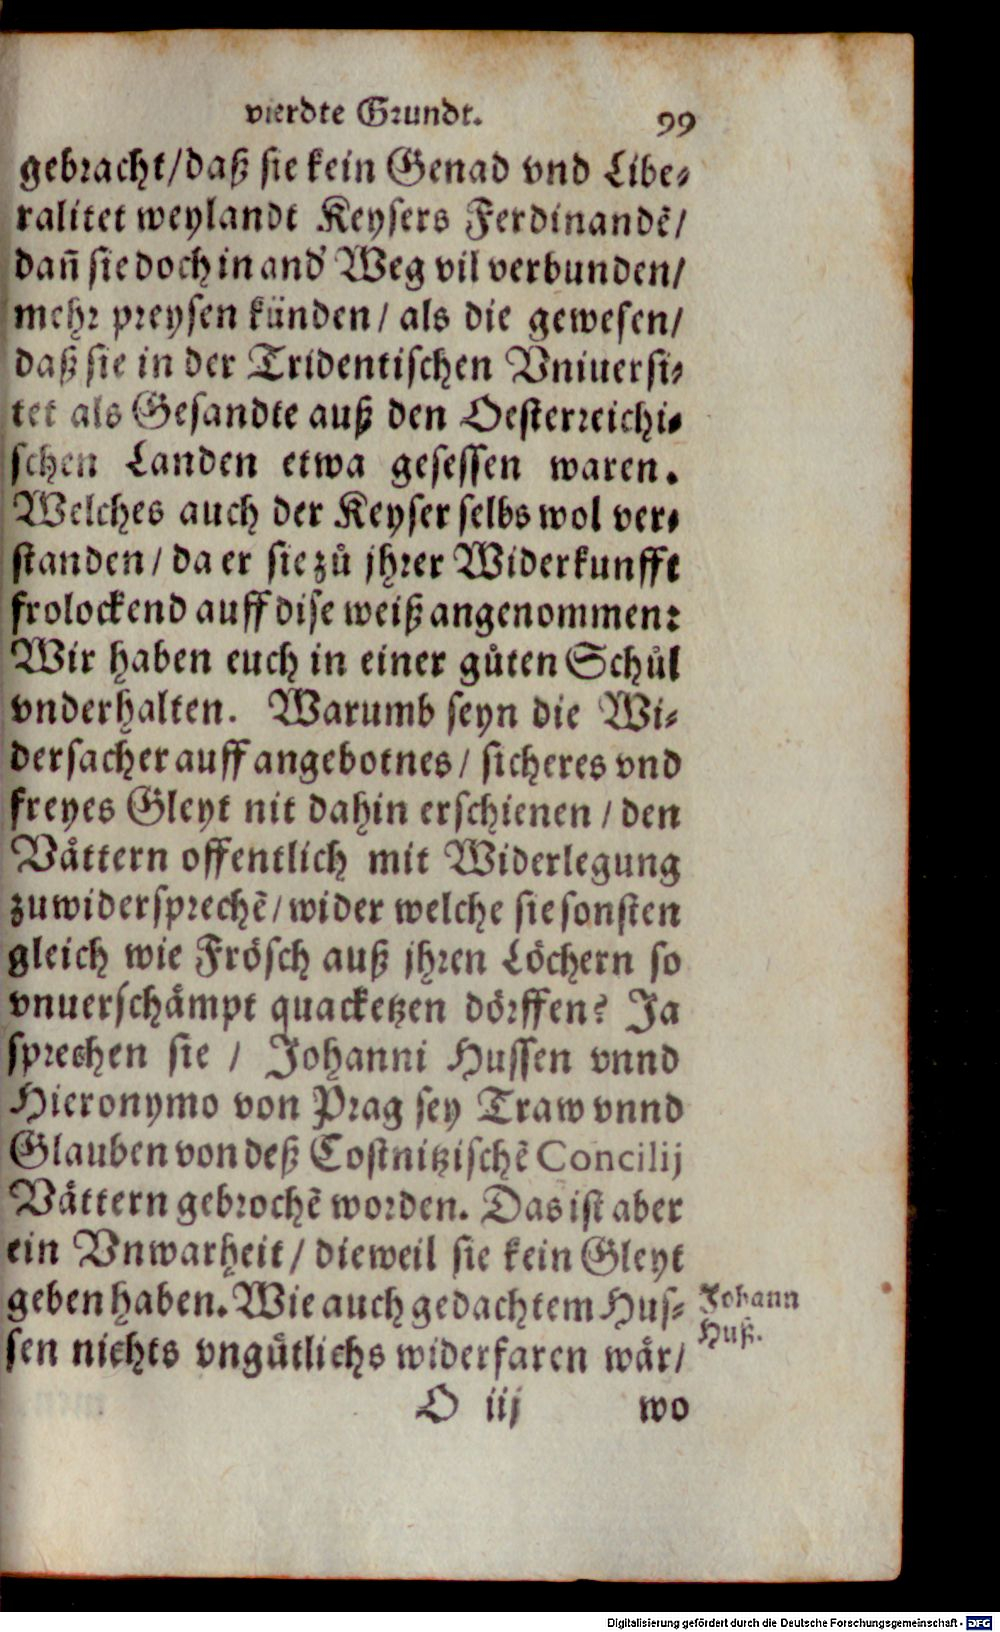 vierdte Grundt. 99
gebracht/daß sie kein Genad vnd Libe-
ralitet weylandt Keysers Ferdinandẽ/
dañ sie doch in and' Weg vil verbunden/
mehr preysen künden/ als die gewesen/
daß sie in der Tridentischen Vniuersi-
tet als Gesandte auß den Oesterreichi-
schen Landen etwa gesessen waren.
Welches auch der Keyser selbs wol ver-
standen/ da er sie zů jhrer Widerkunfft
frolockend auff dise weiß angenommen:
Wir haben euch in einer gůten Schůl
vnderhalten. Warumb seyn die Wi-
dersacher auff angebotnes/ sicheres vnd
freyes Gleyt nit dahin erschienen/ den
Våttern offentlich mit Widerlegung
zuwidersprechẽ/ wider welche sie sonsten
gleich wie Frösch auß jhren Löchern so
vnuerschåmpt quacketzen dörffen? Ja
sprechen sie / Johanni Hussen vnnd
Hieronymo von Prag sey Traw vnnd
Glauben von deß Costnitzischẽ Concilij
Våttern gebrochẽ worden. Das ist aber
ein Vnwarheit/ dieweil sie kein Gleyt
geben haben. Wie auch gedachtem Hus-
sen nichts vngůtlichs widerfaren wår/
Johann
Huß.
O iij wo
Digitalisierung gefördert durch die Deutsche Forschungsgemeinschaft - DFG